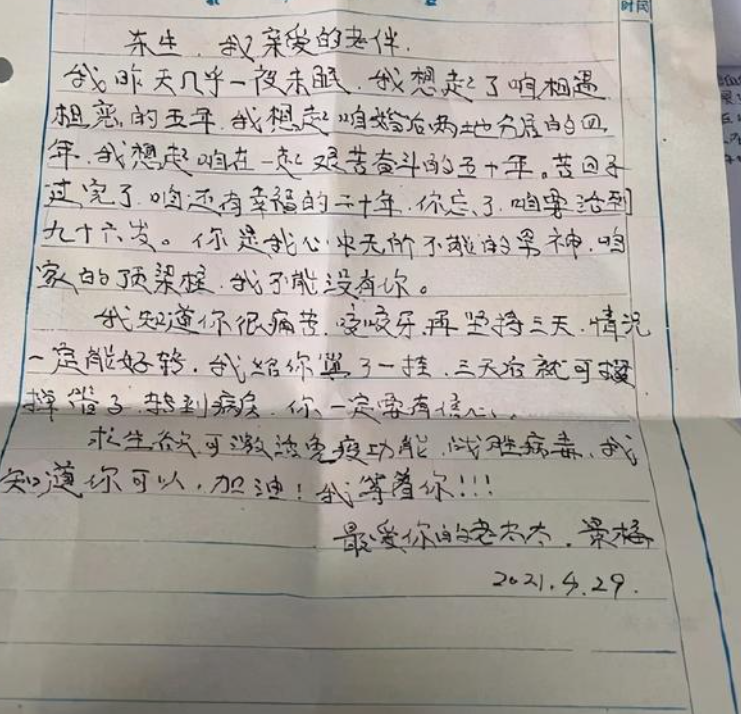 时间
东生，我亲爱的老伴，
我昨天几乎一夜未眠，我想起了咱相遇
相恋的五年，我想起咱婚后两地分居的四
年，我想起咱在一起艰苦奋斗的五十年。苦日子
过完了，咱还有幸福的二十年，你忘了，咱要活到
九十六岁。你是我心中无所不能的男神，咱
家的顶梁柱，我不能没有你。
我知道你很痛苦，咬咬牙，再坚持三天，情况
一定能好转，我给你算了一挂，三天后就可拔
掉管子，转到病房，你一定要有信心，
求生欲可激活免疫功能，战胜病毒，我
知道你可以，加油！我等着你！！！
最爱你的老太太，景
2021.4.29.